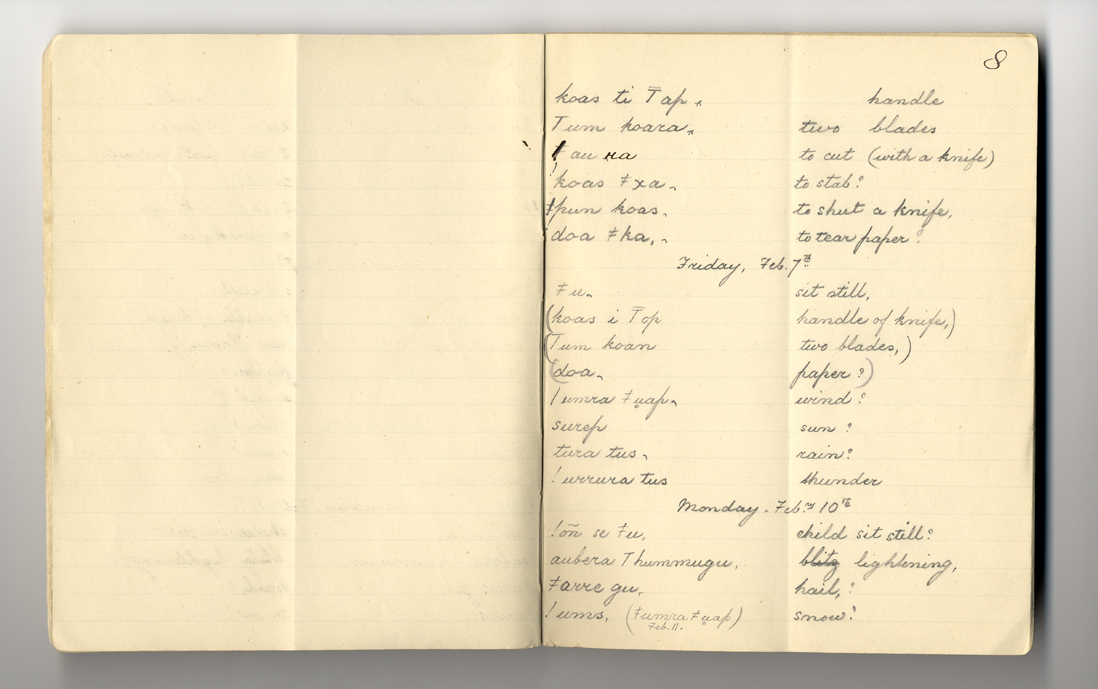 8
koas ti Tap. handle
Tum koara. two blades
ǂ au ra to cut (with a knife)
koas ǂxa. to stab?
ǂpun koas. to shut a knife,
doa ǂka,. to tear paper?
Friday, Feb. 7th
ǂu. sit still,
(koas i Top handle of knife,)
(Tum koan two blades,)
(doa. paper?)
! umra ǂu̯ap. wind?
surep sun?
tura tus. rain?
! urrura tus thunder
Monday. Feb.ry 10th
!oñ se ǂu, child sit still?
aubera Thummugu, blitz lightening,
ǂarre gu. hail,?
! ums, (ǂumra ǂu̯ap) snow?
Feb. 11.